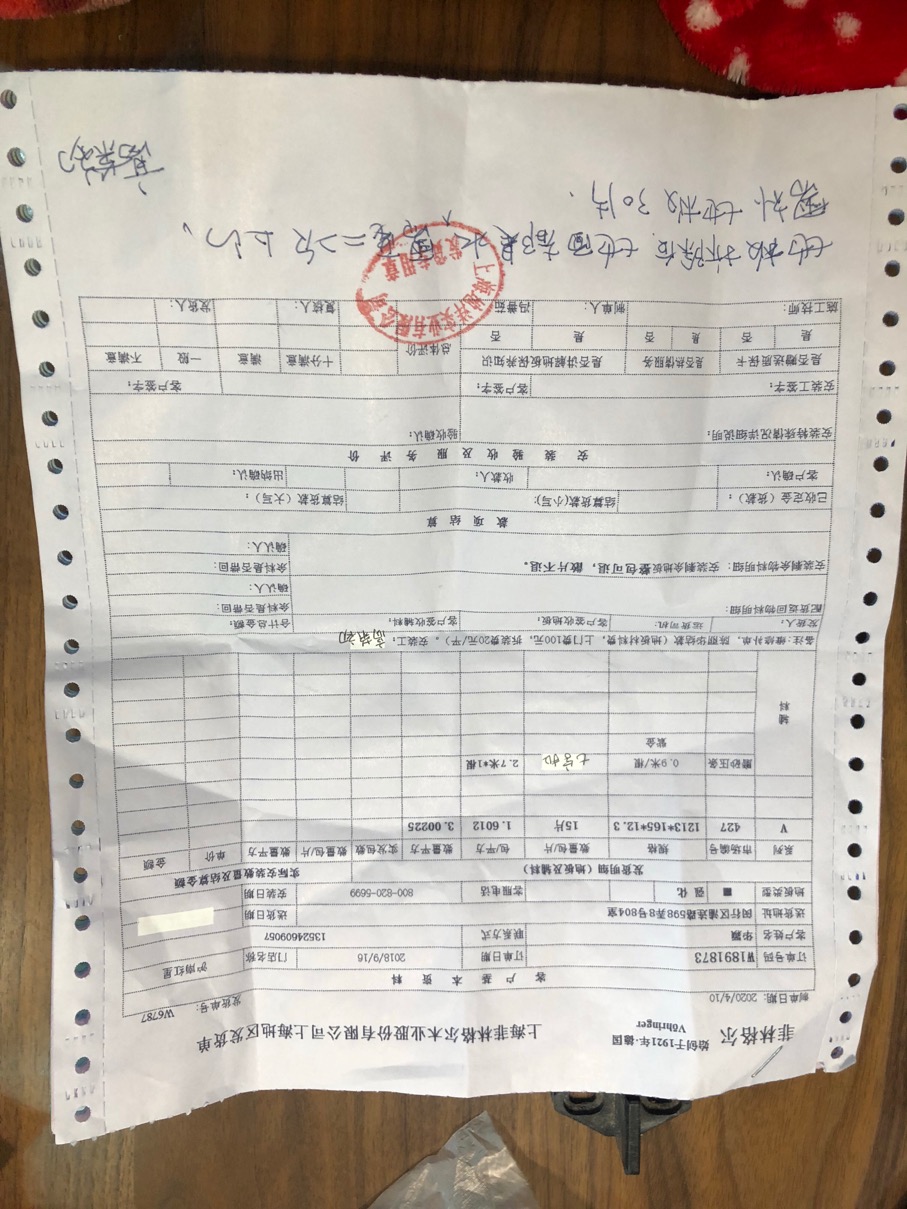 菲林格尔 始创于1921年·德国 Vöhringer 上海菲林格尔木业股份有限公司上海地区发货单
制单日期: 2020/4/10 发货单号: W6787
客 户 基 本 资 料
订单号码 W1891873 订单日期 2018/9/16 门店名称 沪南红星
客户姓名 华颢 联系方式 13524609057
送货地址 闵行区浦连路598弄8号804室 送货日期
地板类型 ■ 强化 客服电话 800-820-5699 安装日期
发货明细（地板及辅料） 实际安装数量及结算金额
系列 市场编号 规格 数量包/片 包/平方 数量平方 实发包数 数量包/片 数量平方 单价 金额
V 427 1213*165*12.3 15片 1.6012 3.00225
辅料
磨砂压条 0.9米/根 紫金 七字扣 2.7米*1根
备注: 维修补单，陈丽华款（地板材料费，上门费100元，拆装费20元/平）。安装工:
发货人: 运货司机: 客户签收地板: 客户签收辅料: 合计总金额:
配货返回物料明细: 余料是否带回:
确认人:
安装剩余物料明细: 安装剩余地板整包可退，散片不退。 余料是否带回:
确认人:
款 项 结 算
已收定金（货款）: 结算货款(小写): 结算货款（大写）:
客户确认: 收款人: 出纳确认:
安 装 验 收 及 服 务 评 价
安装特殊情况详细说明: 验收确认:
安装工签字: 客户签字: 客户签字:
是否赠送质保卡 是否热情服务 是否讲解地板保养知识 总体评价 十分满意 满意 一般 不满意
是 否 是 否 是 否
施工技师: 制单人: 冯善茹 复核人: 发货人:
上海地洋实业有限公司
发货专用章
地板拆除后，地面都是水，需要二次上门。
需补地板30片.